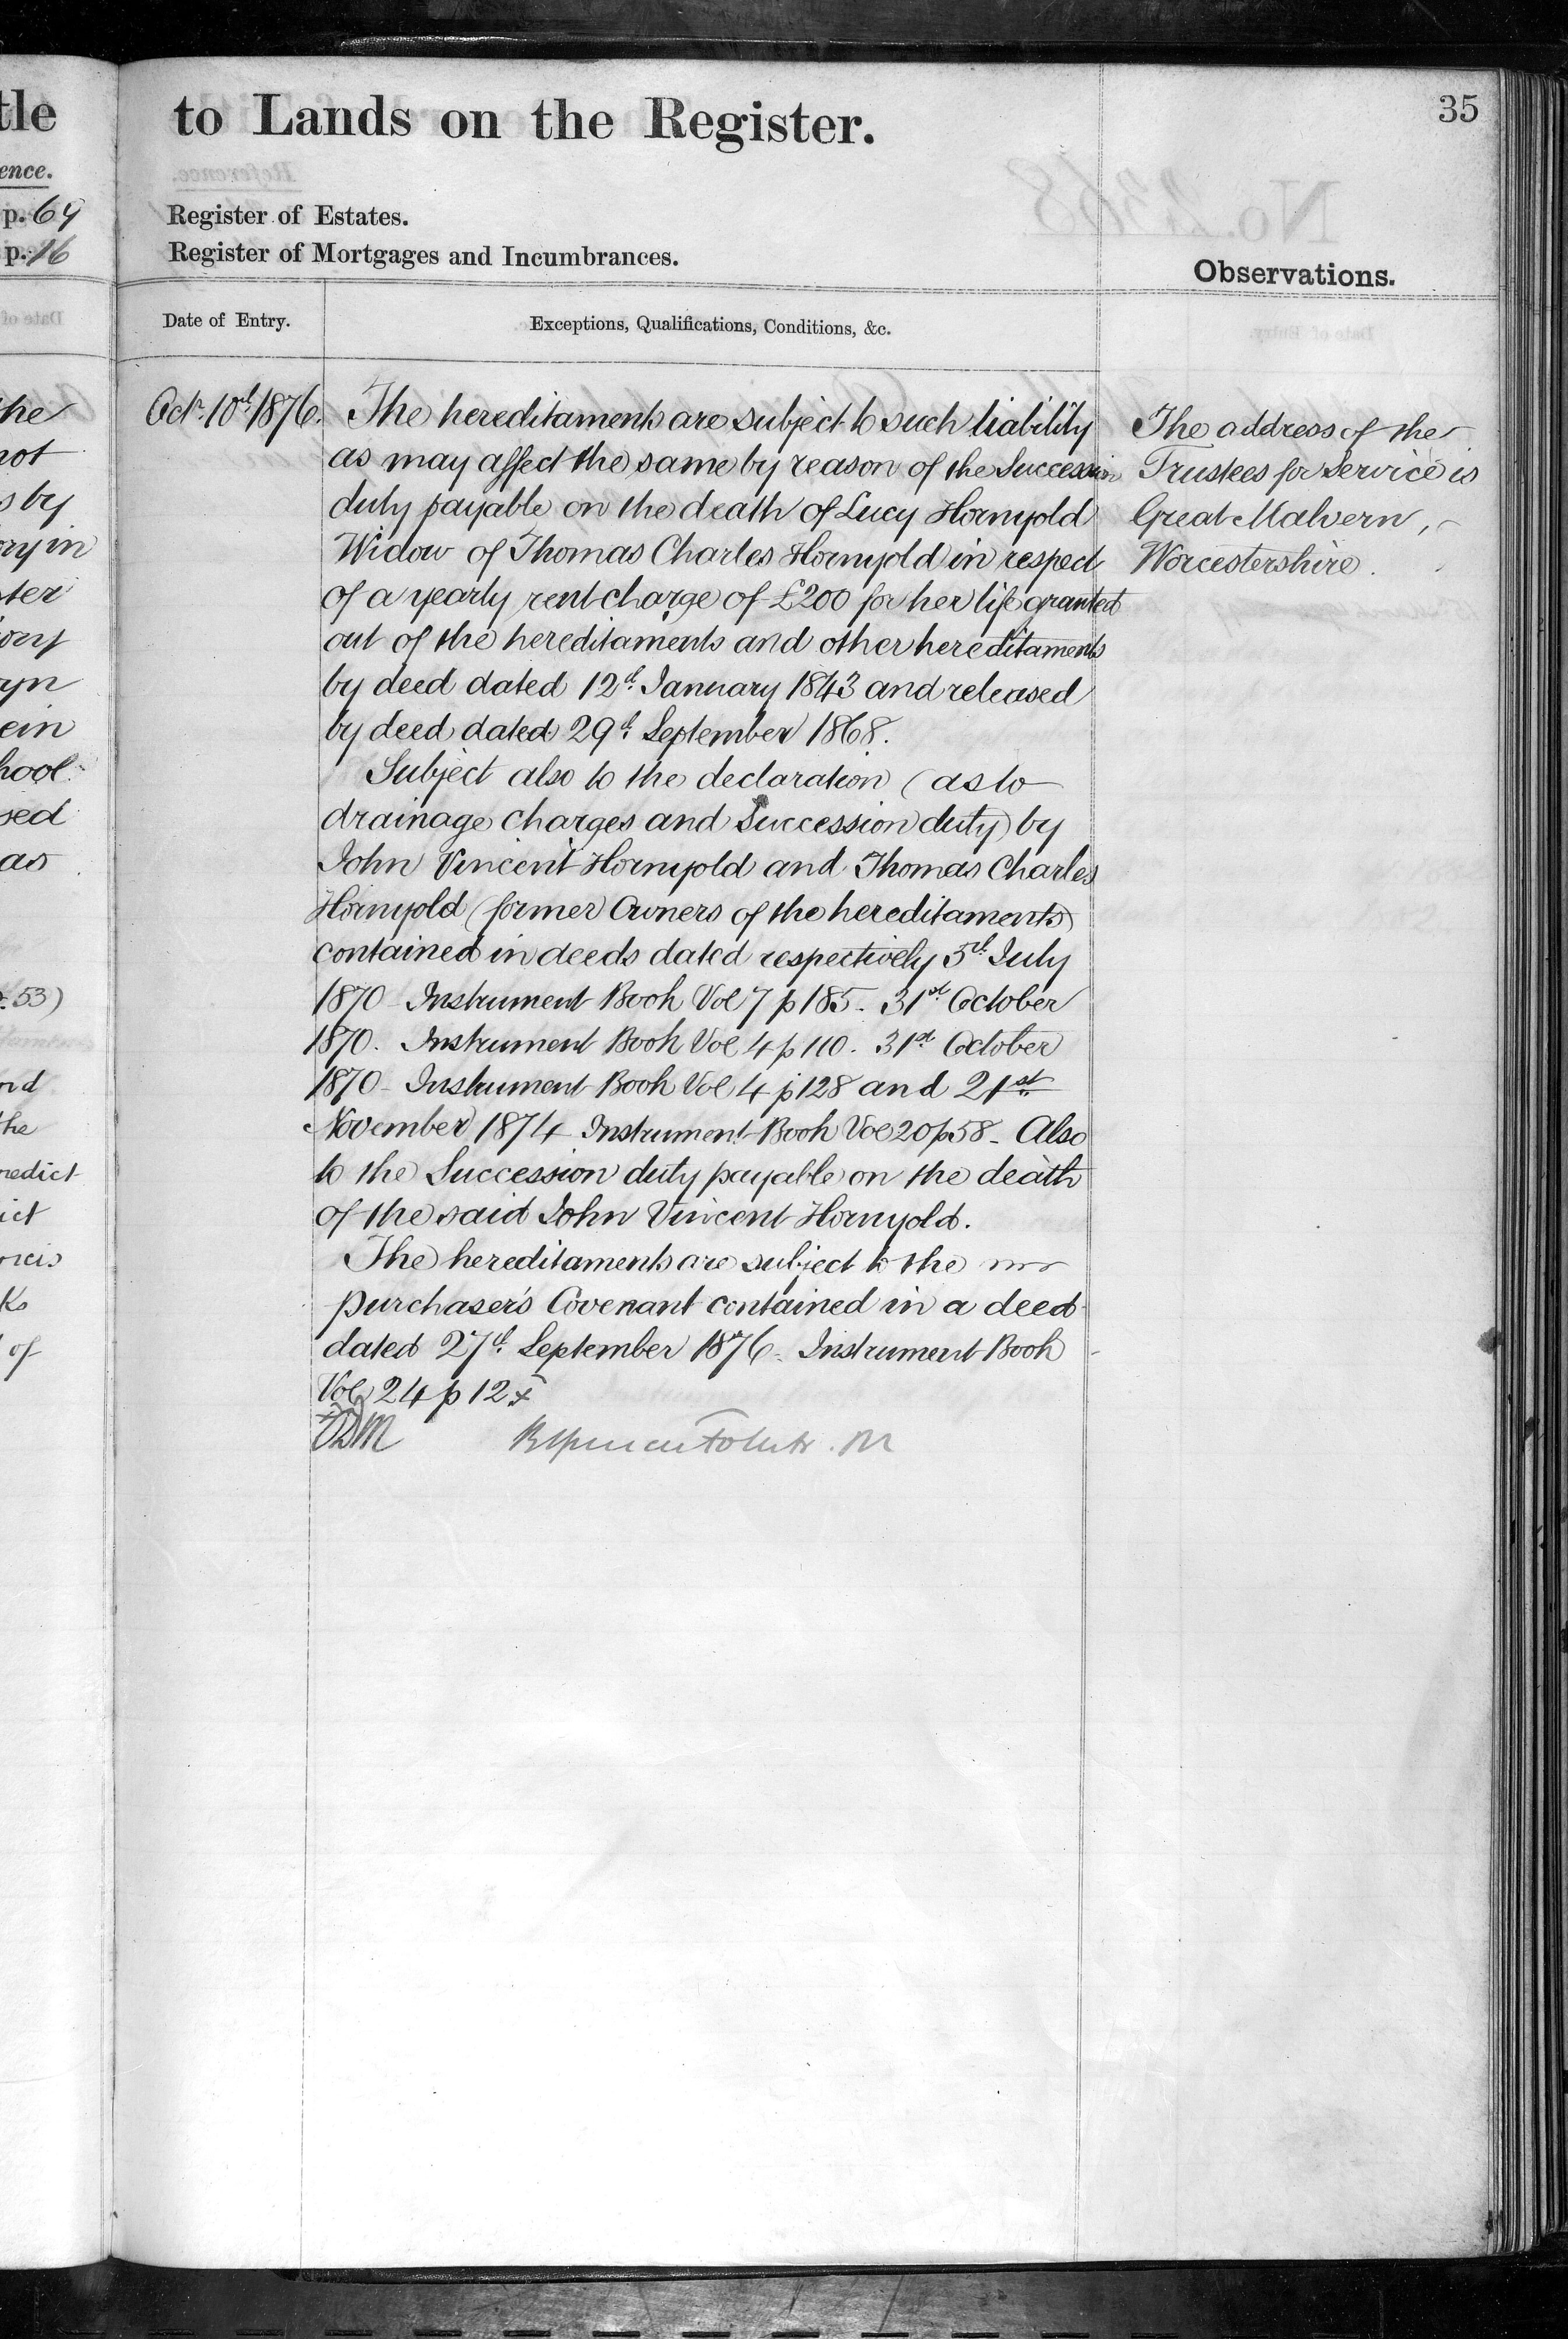 tle
ence.
p. 69
p. 16
he
not
s by
ory in
ster
ory
yn
ein
hool
sed
as
p. 53)
nd
the
nedict
ict
ncis
Ks
of
to Lands on the Register.
35
Register of Estates.
Register of Mortgages and Incumbrances.
Observations.
Date of Entry.
Exceptions, Qualifications, Conditions, &c.
Octr. 10th 1876.
The hereditaments are subject to such liability
as may affect the same by reason of the Succession
duty payable on the death of Lucy Hornyold
Widow of Thomas Charles Hornyold in respect
of a yearly rent charge of £200 for her life granted
out of the hereditaments and other hereditaments
by deed dated 12th January 1843 and released
by deed dated 29th September 1868.
Subject also to the declaration (as to
drainage charges and Succession duty) by
John Vincent Hornyold and Thomas Charles
Hornyold (former Owners of the hereditaments)
contained in deeds dated respectively 5th July
1870 - Instrument Book Vol 7 p 185. 31st October
1870. Instrument Book Vol 4 p 110. 31st October
1870 - Instrument Book Vol 4 p 128 and 21st
November 1874 Instrument Book Vol 20 p 58 - Also
to the Succession duty payable on the death
of the said John Vincent Hornyold.
The hereditaments are subject to the
purchaser's Covenant contained in a deed
dated 27th September 1876. Instrument Book
Vol 24 p 12 x
The address of the
Trustees for Service is
Great Malvern,
Worcestershire.